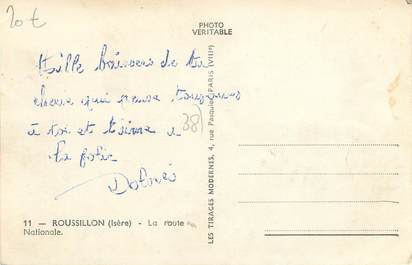 20 €
PHOTO
VERITABLE
Mille baisers de ta
cherie qui pense toujours
à toi et t'aime a
la folie
Dolorès
38
11 — ROUSSILLON (Isère) - La route
Nationale.
LES TIRAGES MODERNES, 4, rue Pasquier, PARIS (VIIIe)